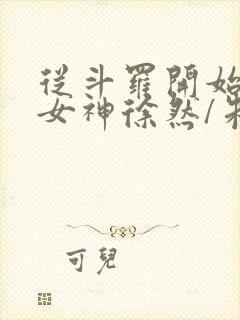 從斗羅開始
女神徐然/朱
可兒